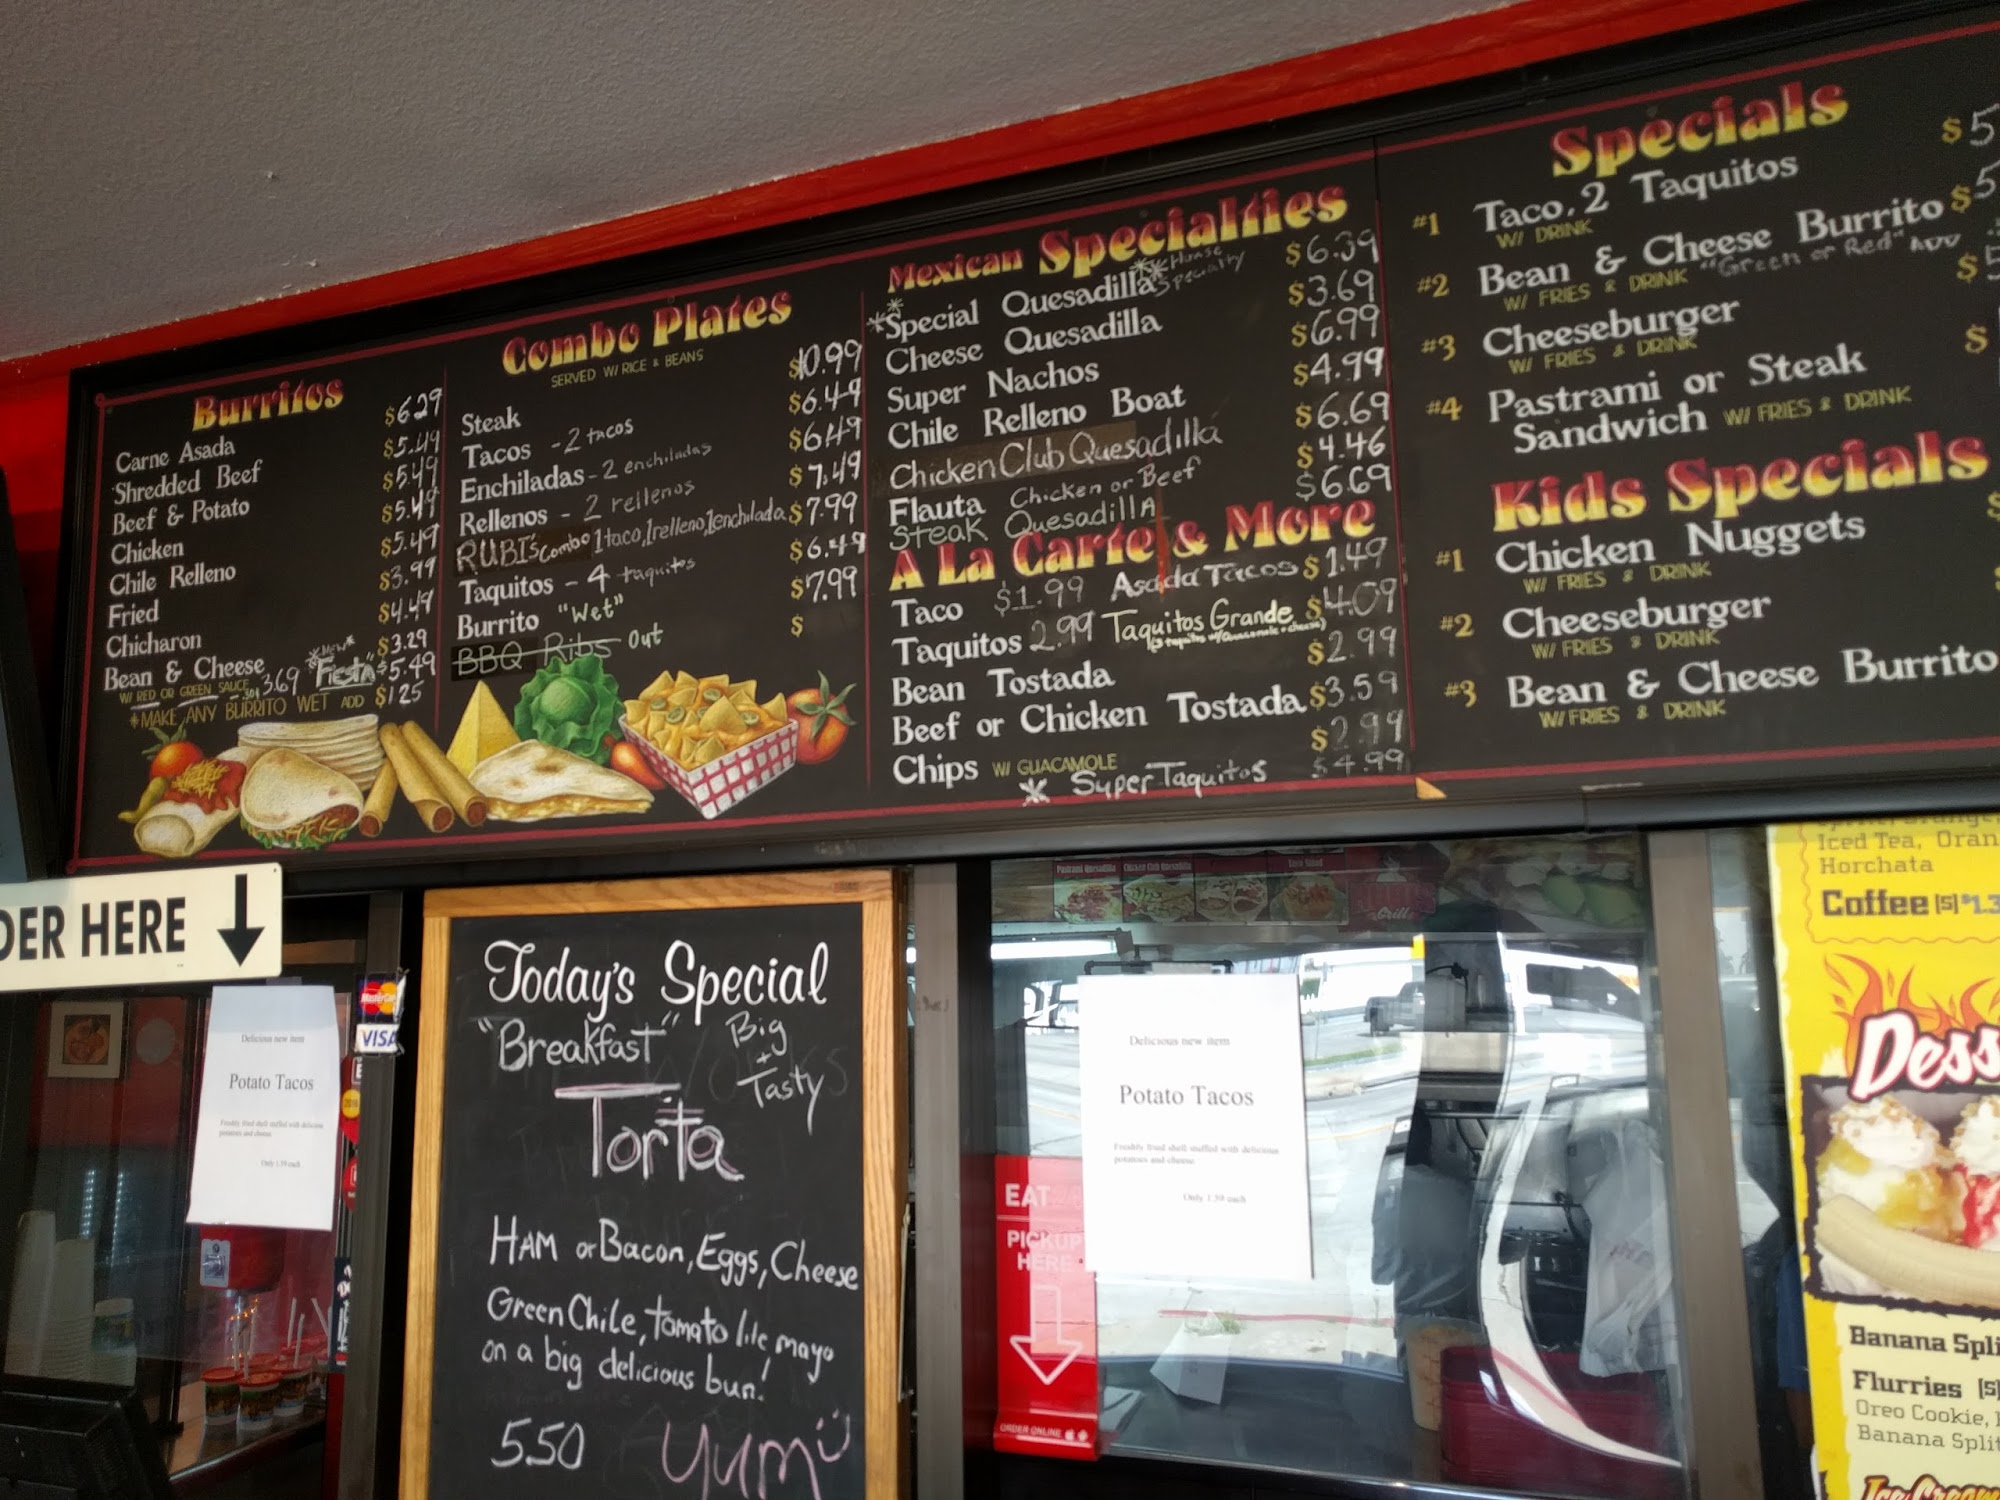 Burritos
Carne Asada $6.29
Shredded Beef $5.49
Beef & Potato $5.49
Chicken $5.49
Chile Relleno $5.49
Fried $3.99
Chicharon $4.49
Bean & Cheese $3.29
W/ RED OR GREEN SAUCE 3.69 *NEW* "Fiesta" $5.49
*MAKE ANY BURRITO WET ADD $1.25
Combo Plates
SERVED W/ RICE & BEANS
Steak $10.99
Tacos - 2 tacos $6.49
Enchiladas - 2 enchiladas $6.49
Rellenos - 2 rellenos $7.49
RUBI's Combo 1 taco, 1 relleno, 1 enchilada $7.99
Taquitos - 4 taquitos $6.49
Burrito "Wet" $7.99
BBQ Ribs Out $
Mexican Specialties
*Special Quesadilla** House Specialty $6.39
Cheese Quesadilla $3.69
Super Nachos $6.99
Chile Relleno Boat $4.99
Chicken Club Quesadilla $6.69
Flauta Chicken or Beef $4.46
Steak Quesadilla $6.69
A La Carte & More
Taco $1.99 Asada Tacos $1.49
Taquitos 2.99 Taquitos Grande $4.09
Bean Tostada $2.99
Beef or Chicken Tostada $3.59
Chips W/ GUACAMOLE $2.99
* Super Taquitos $4.99
Specials
#1 Taco, 2 Taquitos $5
W/ DRINK
#2 Bean & Cheese Burrito $5
W/ FRIES & DRINK "Green or Red" ADD
#3 Cheeseburger $5
W/ FRIES & DRINK
#4 Pastrami or Steak $
Sandwich W/ FRIES & DRINK
Kids Specials
#1 Chicken Nuggets $
W/ FRIES & DRINK
#2 Cheeseburger
W/ FRIES & DRINK
#3 Bean & Cheese Burrito
W/ FRIES & DRINK
DER HERE
MasterCard
VISA
Delicious new item
Potato Tacos
Freshly fried shell stuffed with delicious
potatoes and cheese.
Only 1.59 each
Today's Special
"Breakfast" Big
+
Tasty
Torta
HAM or Bacon, Eggs, Cheese
Green Chile, tomato mayo
on a big delicious bun!
5.50 Yum
Pastrami Quesadilla Chicken Club Quesadilla
Grill
Delicious new item
Potato Tacos
Freshly fried shell stuffed with delicious
potatoes and cheese.
Only 1.59 each
EAT
PICKUP
HERE
ORDER ONLINE
Iced Tea, Oran
Horchata
Coffee (S) $1.3
Dess
Banana Spli
Flurries (S)
Oreo Cookie,
Banana Split
Ice Cream